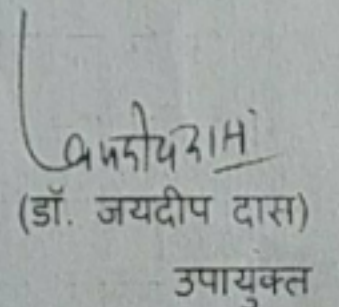 (डॉ. जयदीप दास)
उपायुक्त